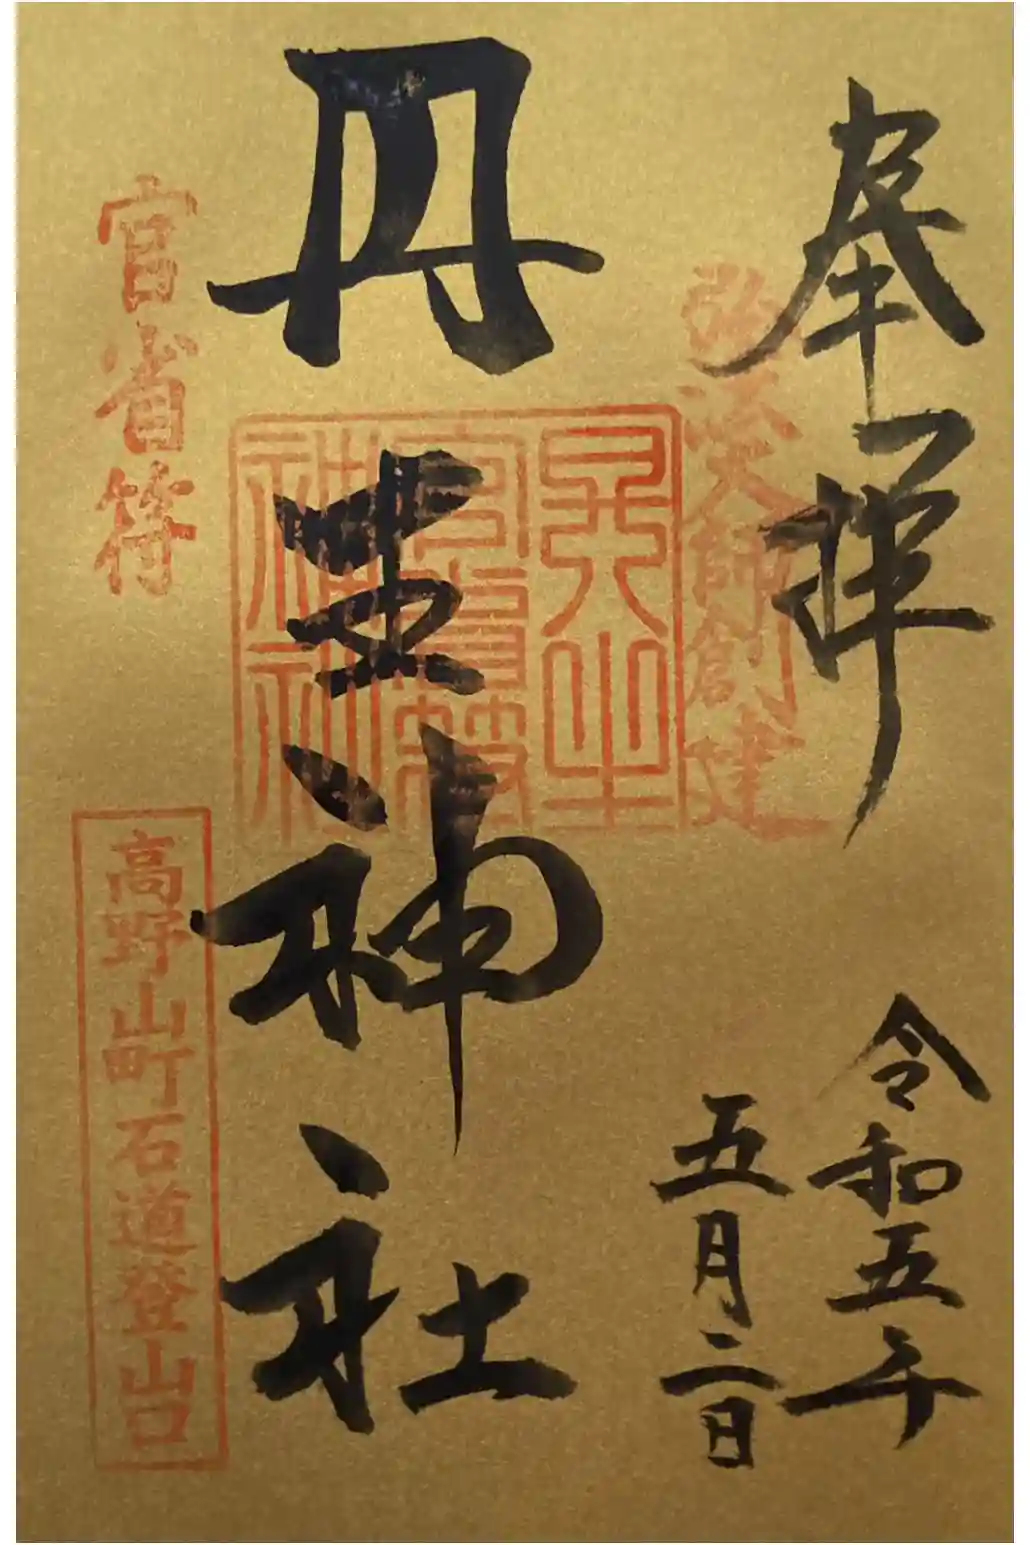 奉拝
令和五年
五月二日
弘法大師創建
丹生神社
丹生
官省符
神社
官省符
高野山町石道登山口